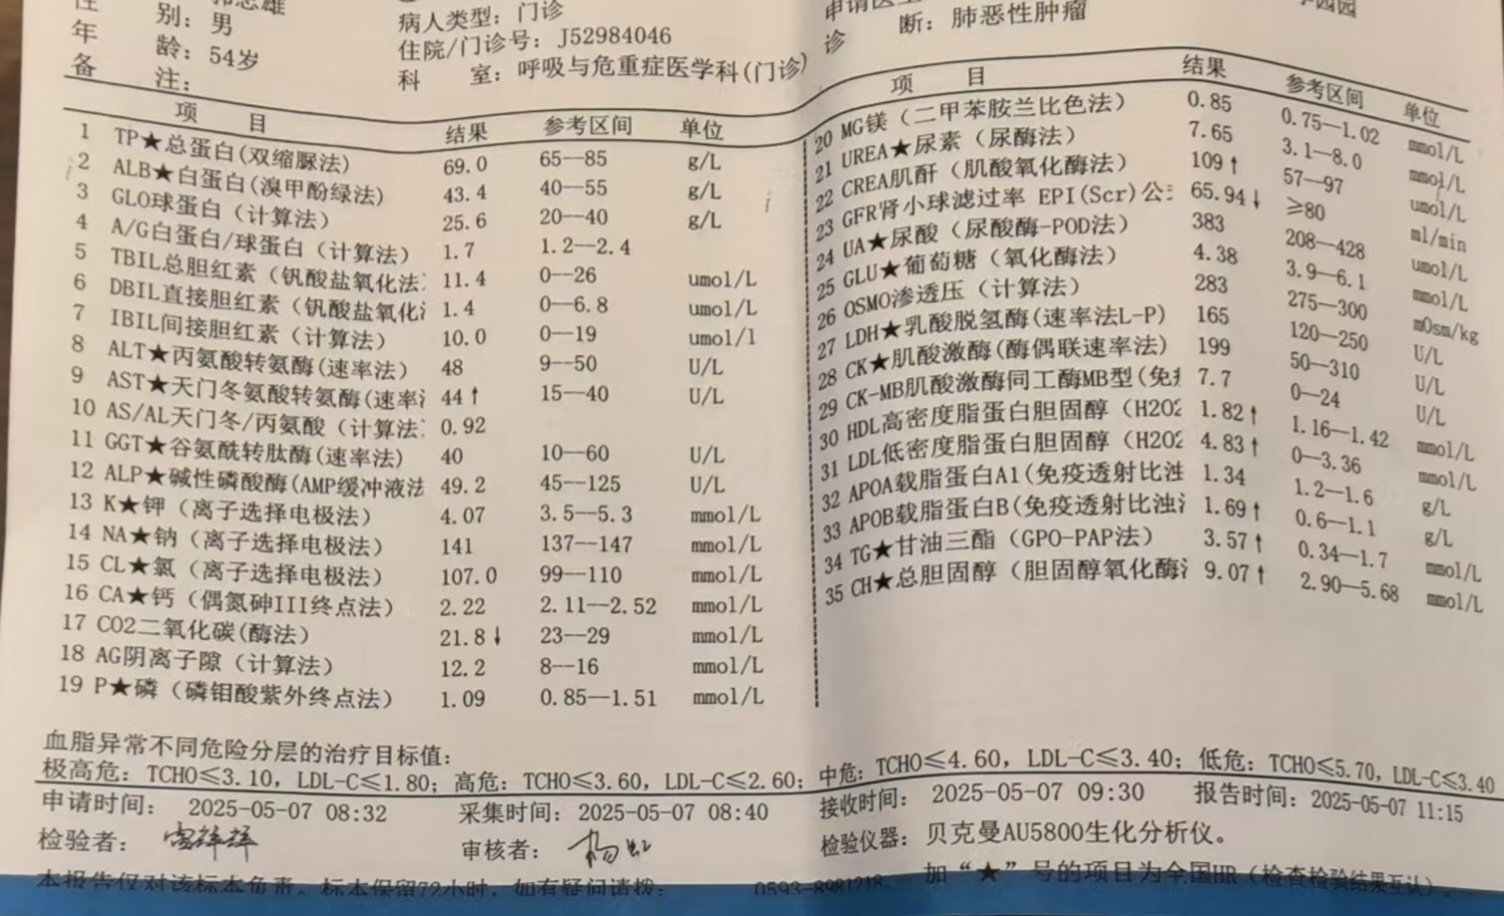 别：男
年 龄：54岁
备 注：
病人类型：门诊
住院/门诊号：J52984046
科 室：呼吸与危重症医学科(门诊)
诊 断：肺恶性肿瘤
项 目 结果 参考区间 单位
1 TP★总蛋白(双缩脲法) 69.0 65—85 g/L
2 ALB★白蛋白(溴甲酚绿法) 43.4 40—55 g/L
3 GLO球蛋白（计算法） 25.6 20—40 g/L
4 A/G白蛋白/球蛋白（计算法） 1.7 1.2—2.4
5 TBIL总胆红素（钒酸盐氧化法 11.4 0—26 umol/L
6 DBIL直接胆红素（钒酸盐氧化 1.4 0—6.8 umol/L
7 IBIL间接胆红素（计算法） 10.0 0—19 umol/l
8 ALT★丙氨酸转氨酶(速率法) 48 9—50 U/L
9 AST★天门冬氨酸转氨酶(速率 44↑ 15—40 U/L
10 AS/AL天门冬/丙氨酸（计算法 0.92
11 GGT★谷氨酰转肽酶(速率法) 40 10—60 U/L
12 ALP★碱性磷酸酶(AMP缓冲液法 49.2 45—125 U/L
13 K★钾（离子选择电极法） 4.07 3.5—5.3 mmol/L
14 NA★钠（离子选择电极法） 141 137—147 mmol/L
15 CL★氯（离子选择电极法） 107.0 99—110 mmol/L
16 CA★钙（偶氮砷III终点法） 2.22 2.11—2.52 mmol/L
17 CO2二氧化碳(酶法) 21.8↓ 23—29 mmol/L
18 AG阴离子隙（计算法） 12.2 8—16 mmol/L
19 P★磷（磷钼酸紫外终点法） 1.09 0.85—1.51 mmol/L
项 目 结果 参考区间 单位
20 MG镁（二甲苯胺兰比色法） 0.85 0.75—1.02 mmol/L
21 UREA★尿素（尿酶法） 7.65 3.1—8.0 mmol/L
22 CREA肌酐（肌酸氧化酶法） 109↑ 57—97 umol/L
23 GFR肾小球滤过率 EPI(Scr)公 65.94↓ ≥80 ml/min
24 UA★尿酸（尿酸酶-POD法） 383 208—428 umol/L
25 GLU★葡萄糖（氧化酶法） 4.38 3.9—6.1 mmol/L
26 OSMO渗透压（计算法） 283 275—300 mOsm/kg
27 LDH★乳酸脱氢酶(速率法L-P) 165 120—250 U/L
28 CK★肌酸激酶(酶偶联速率法) 199 50—310 U/L
29 CK-MB肌酸激酶同工酶MB型(免 7.7 0—24 U/L
30 HDL高密度脂蛋白胆固醇（H2O2 1.82↑ 1.16—1.42 mmol/L
31 LDL低密度脂蛋白胆固醇（H2O2 4.83↑ 0—3.36 mmol/L
32 APOA载脂蛋白A1(免疫透射比浊 1.34 1.2—1.6 g/L
33 APOB载脂蛋白B(免疫透射比浊 1.69↑ 0.6—1.1 g/L
34 TG★甘油三酯（GPO-PAP法） 3.57↑ 0.34—1.7 mmol/L
35 CH★总胆固醇（胆固醇氧化酶 9.07↑ 2.90—5.68 mmol/L
血脂异常不同危险分层的治疗目标值：
极高危：TCHO≤3.10, LDL-C≤1.80；高危：TCHO≤3.60, LDL-C≤2.60；中危：TCHO≤4.60, LDL-C≤3.40；低危：TCHO≤5.70, LDL-C≤3.40
申请时间：2025-05-07 08:32 采集时间：2025-05-07 08:40 接收时间：2025-05-07 09:30 报告时间：2025-05-07 11:15
检验者： 审核者： 检验仪器：贝克曼AU5800生化分析仪。
本报告仅对该标本负责。标本保留72小时，如有疑问请拨： 加“★”号的项目为全国HR（检查检验结果互认）